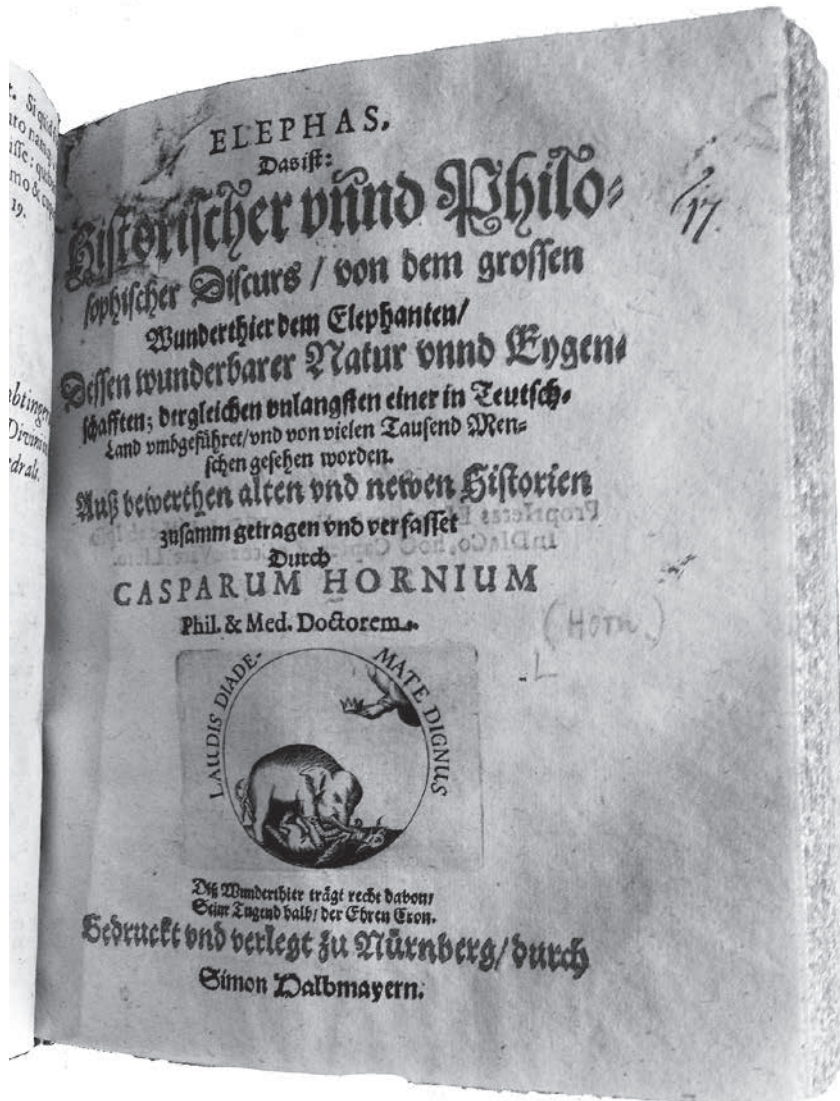 t. Si quid
uto natus
isse; quib
mo & cor
19.
btinger
Divini
edrals.
ELEPHAS,
Das ist:
Historischer vnnd Philo-
sophischer Discurs / von dem grossen
Wunderthier dem Elephanten/
Dessen wunderbarer Natur vnnd Eygen-
schafften; dergleichen vnlangsten einer in Teutsch-
Land vmbgeführet/vnd von vielen Tausend Men-
schen gesehen worden.
Auß bewerthen alten vnd newen Historien
zusamm getragen vnd verfasset
Durch
CASPARUM HORNIUM
Phil. & Med. Doctorem.
LAUDIS DIADE- MATE DIGNUS
Diß Wunderthier trägt recht davon/
Seinr Tugend halb/ der Ehren Cron.
Gedruckt vnd verlegt zu Nürnberg/ durch
Simon Halbmayern.
17.
(Horn.)
L